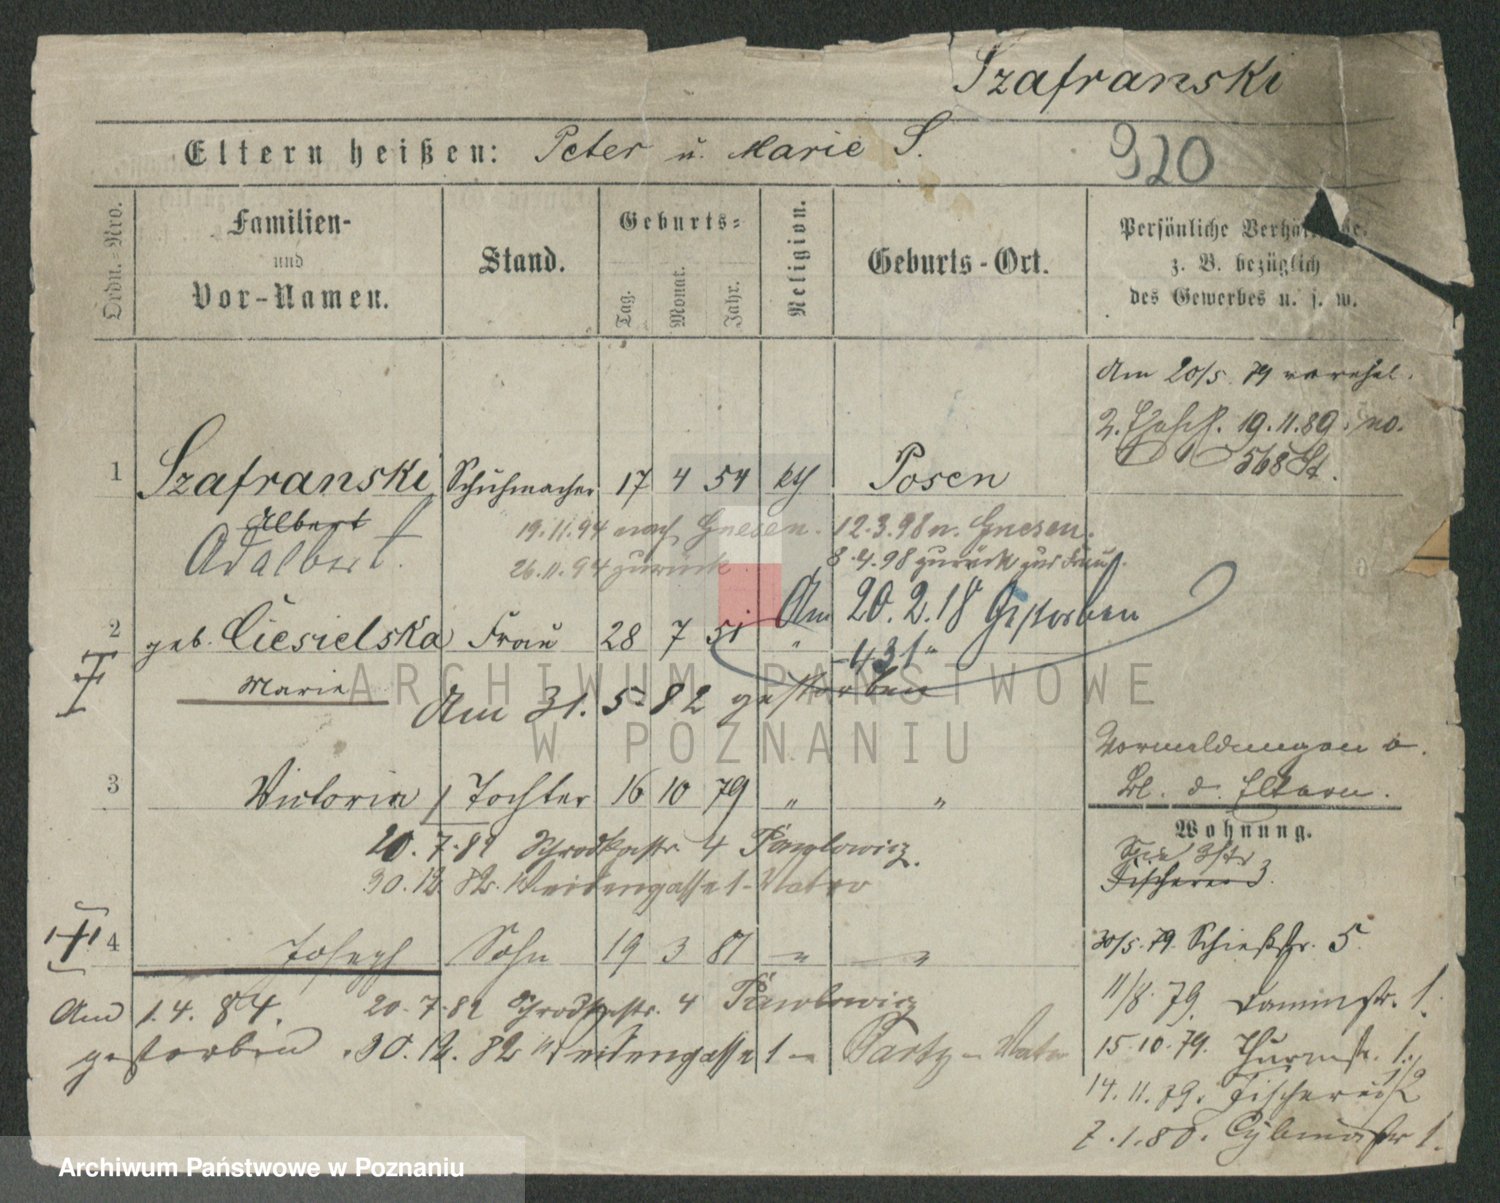 Szafranski
Eltern heißen: Peter u. Marie S.
920
Ordn.-Nro.
Familien-
und
Vor-Namen.
Stand.
Geburts-
Tag.
Monat.
Jahr.
Religion.
Geburts-Ort.
Persönliche
z. B. bezüglich
des Gewerbes u. s. w.
Am 20/5. 79 verehel.
2. 19.11.89. No.
568
1 Szafranski Schuhmacher 17 4 54 kth Posen
Albert
Adalbert.
19.11.94 nach Gnesen. 12.3.98 n. Gnesen.
26.11.94 zurück 8.4.98 zurück zur Frau.
Am 20.2.18 Gestorben
431
2 geb. Ciesielska Frau 28 7 51 "
Marie
Am 31. 5. 82 gestorben
ARCHIWUM PAŃSTWOWE
W POZNANIU
Vormeldungen a.
Bl. d. Eltern.
3 Victoria / Tochter 16 10 79 " "
Wohnung.
20.7.82 Schrodkastr. 4 Pawlowicz.
30.12.82. Weidengasse 1 - Vater
Fischerei 3.
4 Joseph Sohn 19 3 81 " "
30/5. 79. Schießstr. 5.
Am 1.4.84. 20.7.82 Schrodkastr. 4 Pawlowicz
gestorben. 30.12.82 Weidengasse 1 - Vater
11/8. 79. Dammstr. 1.
15.10.79. Thurmstr. 1.
14.11.79. Fischerei
7.1.80. 1.
Archiwum Państwowe w Poznaniu